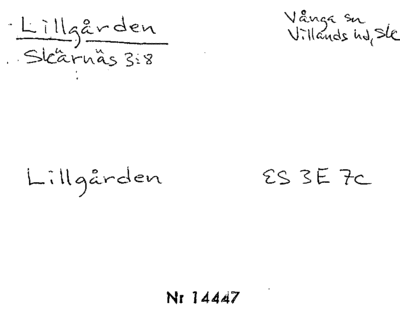 Lillgården
Skärnäs 3:8
Vånga sn
Villands hd, Sk
Lillgården
ES 3E 7c
Nr 14447